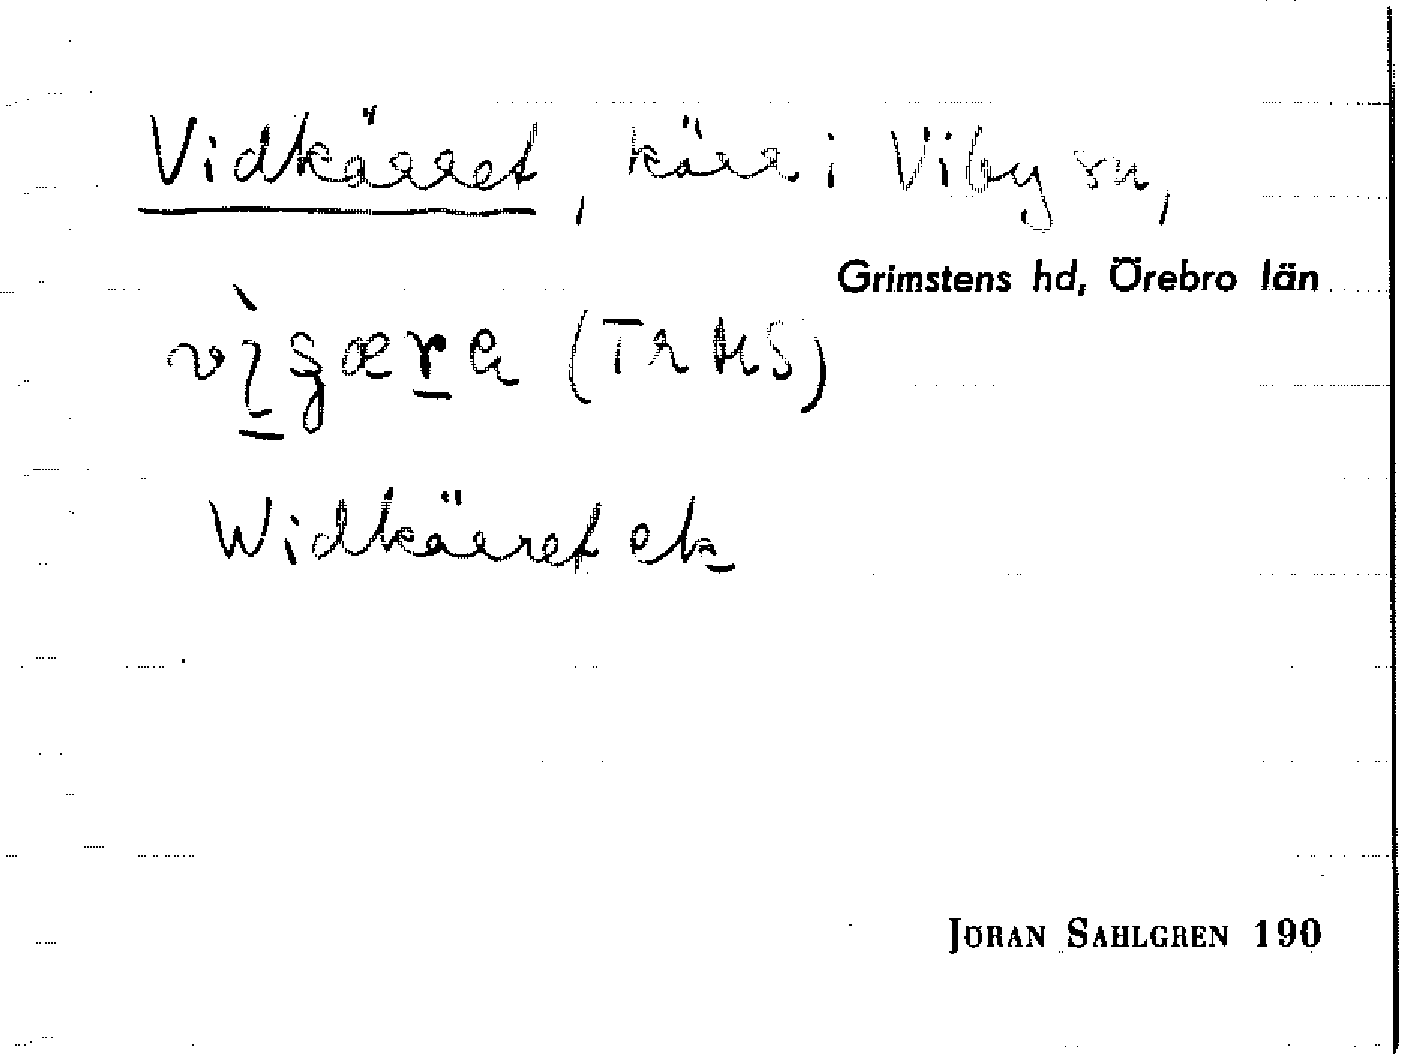 Vidkärret, kärr i Viby sn,
Grimstens hd, Örebro län
(TRMS)
Widkärret ek
JÖRAN SAHLGREN 190